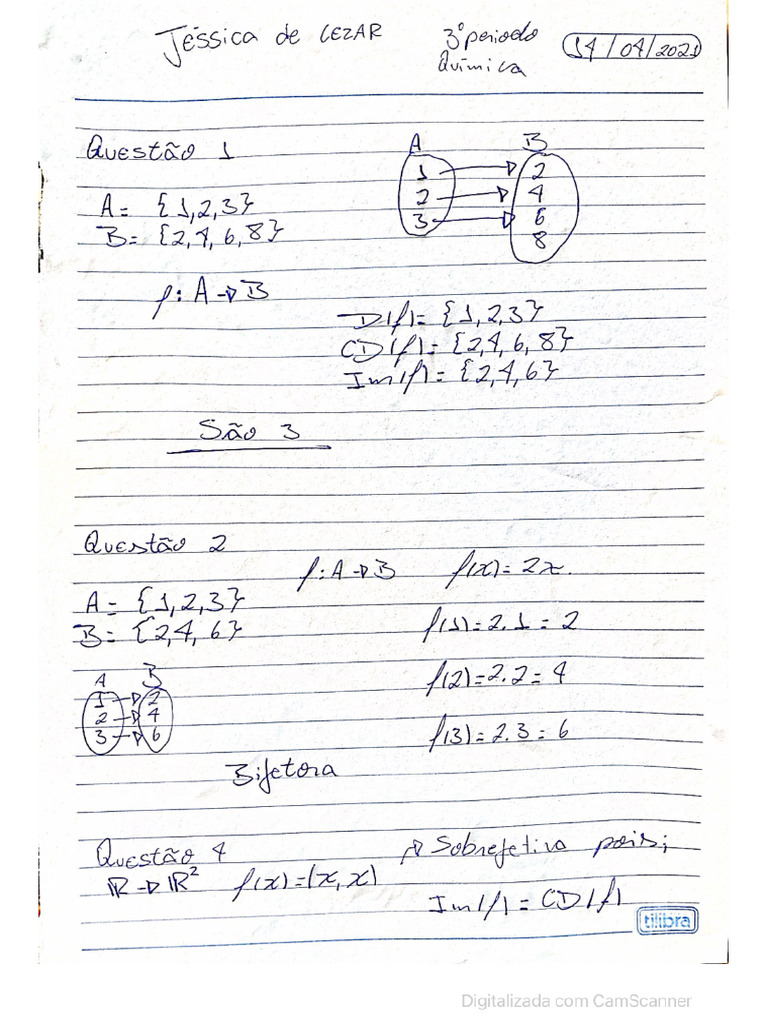 Jéssica de CEZAR 3º periodo 14/04/2021
Química
Questão 1
A = {1,2,3}
B = {2,4,6,8}
f: A → B
A B
1 → 2
2 → 4
3 → 6
8
D(f) = {1,2,3}
CD(f) = {2,4,6,8}
Im(f) = {2,4,6}
São 3
Questão 2
f: A → B f(x) = 2x.
A = {1,2,3}
B = {2,4,6}
f(1) = 2.1 = 2
f(2) = 2.2 = 4
f(3) = 2.3 = 6
A B
1 → 2
2 → 4
3 → 6
Bijetora
Questão 4
ℝ → ℝ² f(x) = (x, x)
→ Sobrejetiva pois;
Im(f) = CD(f)
tilibra
Digitalizada com CamScanner